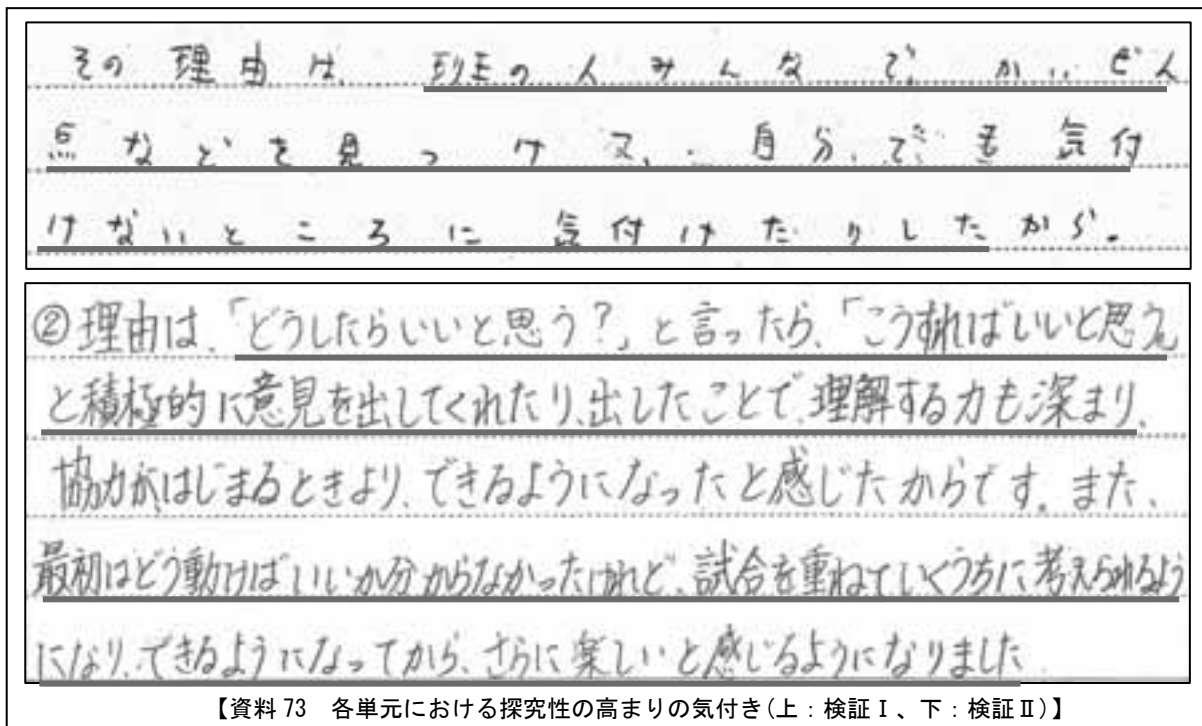 その理由は、班の人みんなで、かいぜん
点などを見つけて、自分でも気付
けないところに気付けたりしたから。
②理由は、「どうしたらいいと思う?」と言ったら、「こうすればいいと思う」
と積極的に意見を出してくれたり、出したことで、理解する力も深まり、
協力がはじまるときより、できるようになったと感じたからです。また、
最初はどう動けばいいか分からなかったけれど、試合を重ねていくうちに考えられるよう
になり、できるようになってから、さらに楽しいと感じるようになりました
【資料73 各単元における探究性の高まりの気付き(上:検証Ⅰ、下:検証Ⅱ)】